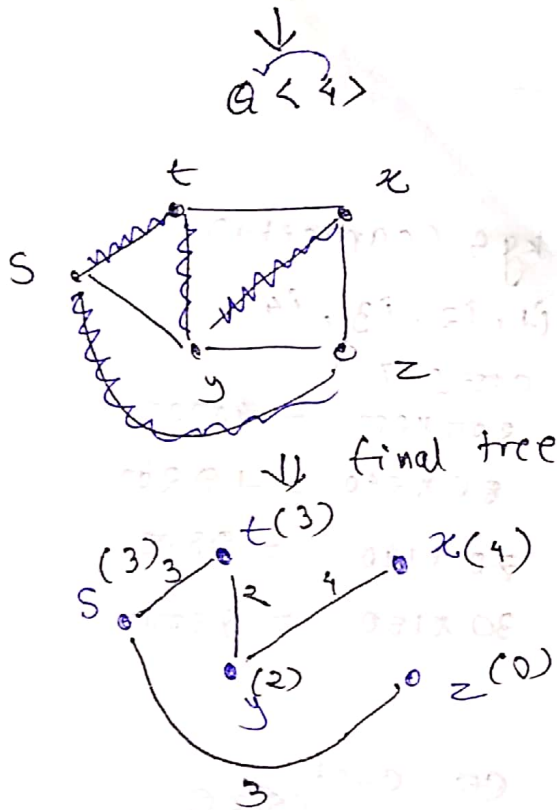 Q < 4 >
t x
S
y z
⇓ final tree
(3) 3 t(3) x(4)
S 2 4
y(2) z(0)
3